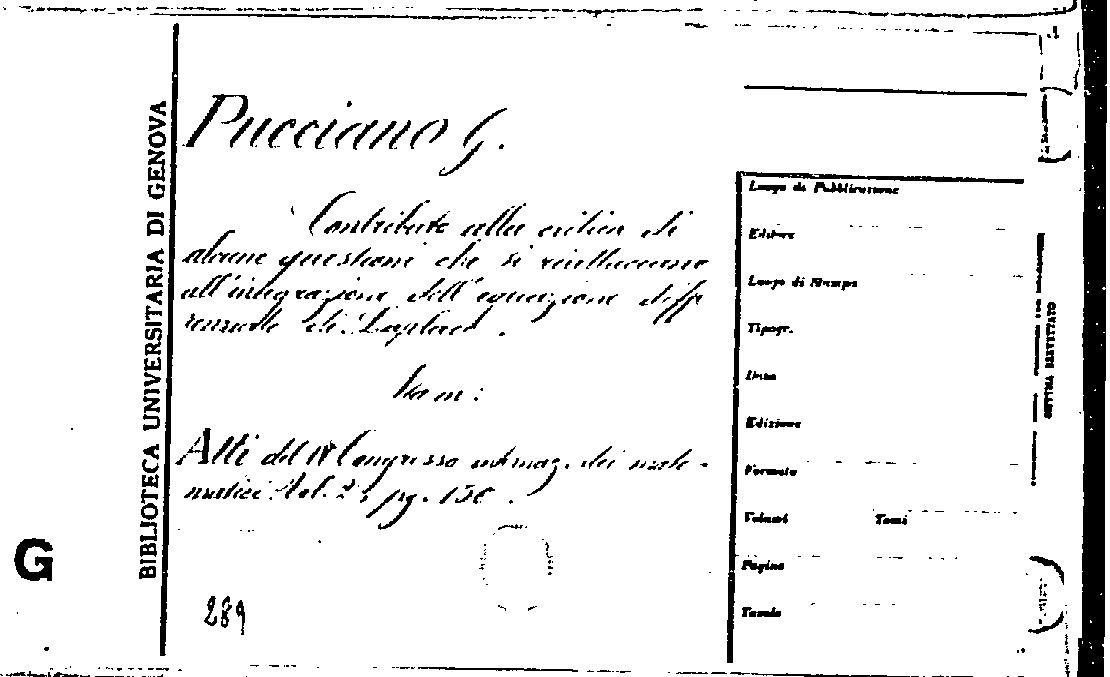 BIBLIOTECA UNIVERSITARIA DI GENOVA
G
Pucciano G.
Contributo alla critica di
alcune questioni che si riattaccano
all'integrazione dell'equazione diffe
renziale di Laplace.
Atti del IV Congresso internaz. dei mate-
matici Vol. 2, pg. 150.
289
Luogo di Pubblicazione
Editore
Luogo di Stampa
Tipogr.
Data
Edizione
Formato
Volumi Tomi
Pagine
Tavole